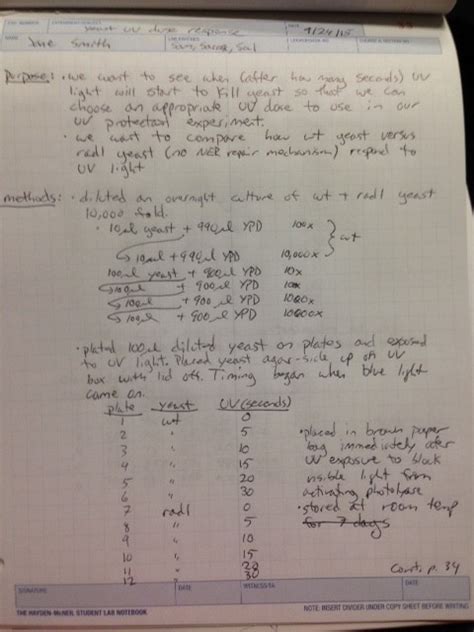 EXP. NUMBER EXPERIMENT/SUBJECT yeast UV dose response DATE 9/24/15 33
NAME Jane Smith LAB PARTNER Sam, Sarong, Sal LOCKER/DESK NO. COURSE & SECTION NO.
Purpose: • we want to see when (after how many seconds) UV
light will start to kill yeast so that we can
choose an appropriate UV dose to use in our
UV protection experiment.
• we want to compare how wt yeast versus
rad1 yeast (no NER repair mechanism) respond to
UV light
methods: • diluted an overnight culture of wt + rad1 yeast
10,000 fold.
• 10µl yeast + 990µl YPD 100x
10µl + 990µl YPD 10,000x } wt
100µl yeast + 900µl YPD 10x
100µl + 900µl YPD 100x
100µl + 900µl YPD 1000x
100µl + 900µl YPD 10000x
• plated 100µl diluted yeast on plates and exposed
to UV light. Placed yeast agar-side up on UV
box with lid off. Timing began when blue light
came on.
plate yeast UV (seconds)
1 wt 0
2 " 5 • placed in brown paper
3 " 10 bag immediately after
4 " 15 UV exposure to block
5 " 20 visible light from
6 " 30 activating photolyase
7 rad1 0 • stored at room temp
8 " 5 for 7 days
9 " 10
10 " 15
11 " 20 Cont. p. 34
12 " 30
SIGNATURE DATE WITNESS/TA DATE
THE HAYDEN-McNEIL STUDENT LAB NOTEBOOK NOTE: INSERT DIVIDER UNDER COPY SHEET BEFORE WRITING